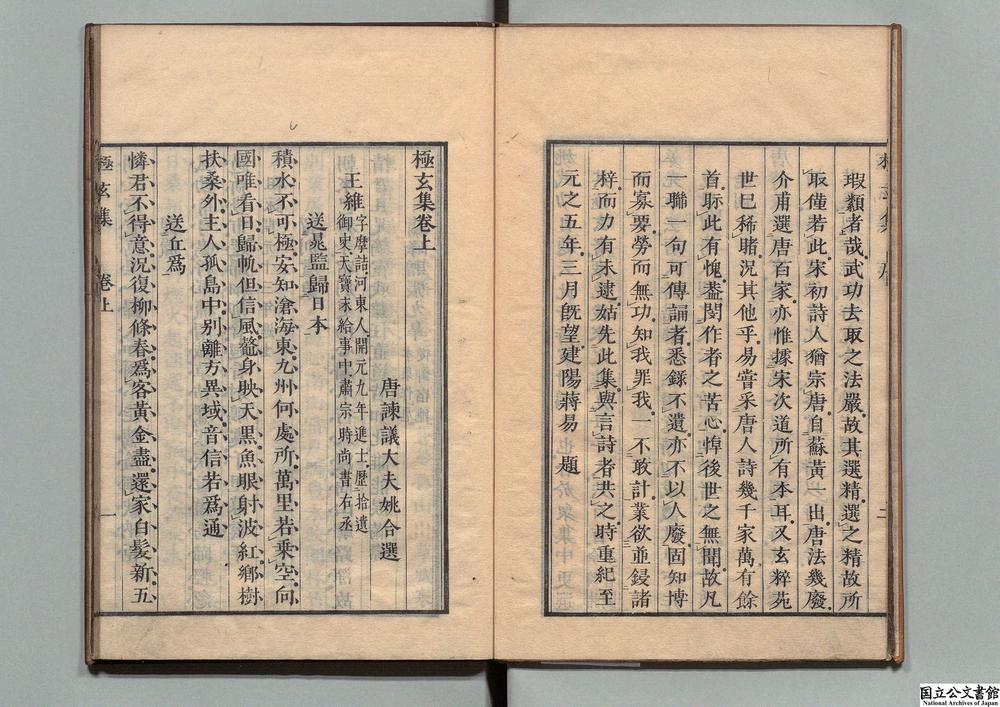 瑕纇者哉武功去取之法嚴故其選精選之精故所
取僅若此宋初詩人猶宗唐自蘇黃一出唐法幾廢
介甫選唐百家亦惟據宋次道所有本耳又玄粹苑
世已稀睹況其他乎易嘗采唐人詩幾千家萬有餘
首眎此有愧葢閔作者之苦心悼後世之無聞故凡
一聯一句可傳誦者悉錄不遺亦不以人廢固知博
而寡要勞而無功知我罪我一不敢計業欲並鋟諸
梓而力有未逮姑先此集與言詩者共之時重紀至
元之五年三月旣望建陽蔣易 題
極玄集卷上
唐諫議大夫姚合選
王維 字摩詰河東人開元九年進士歷拾遺
御史天寶末給事中肅宗時尚書右丞
送晁監歸日本
積水不可極安知滄海東九州何處所萬里若乘空向
國唯看日歸帆但信風鰲身映天黑魚眼射波紅鄉樹
扶桑外主人孤島中別離方異域音信若爲通
送丘爲
憐君不得意況復柳條春爲客黃金盡還家白髮新五
極玄集 卷上 一
国立公文書館
National Archives of Japan